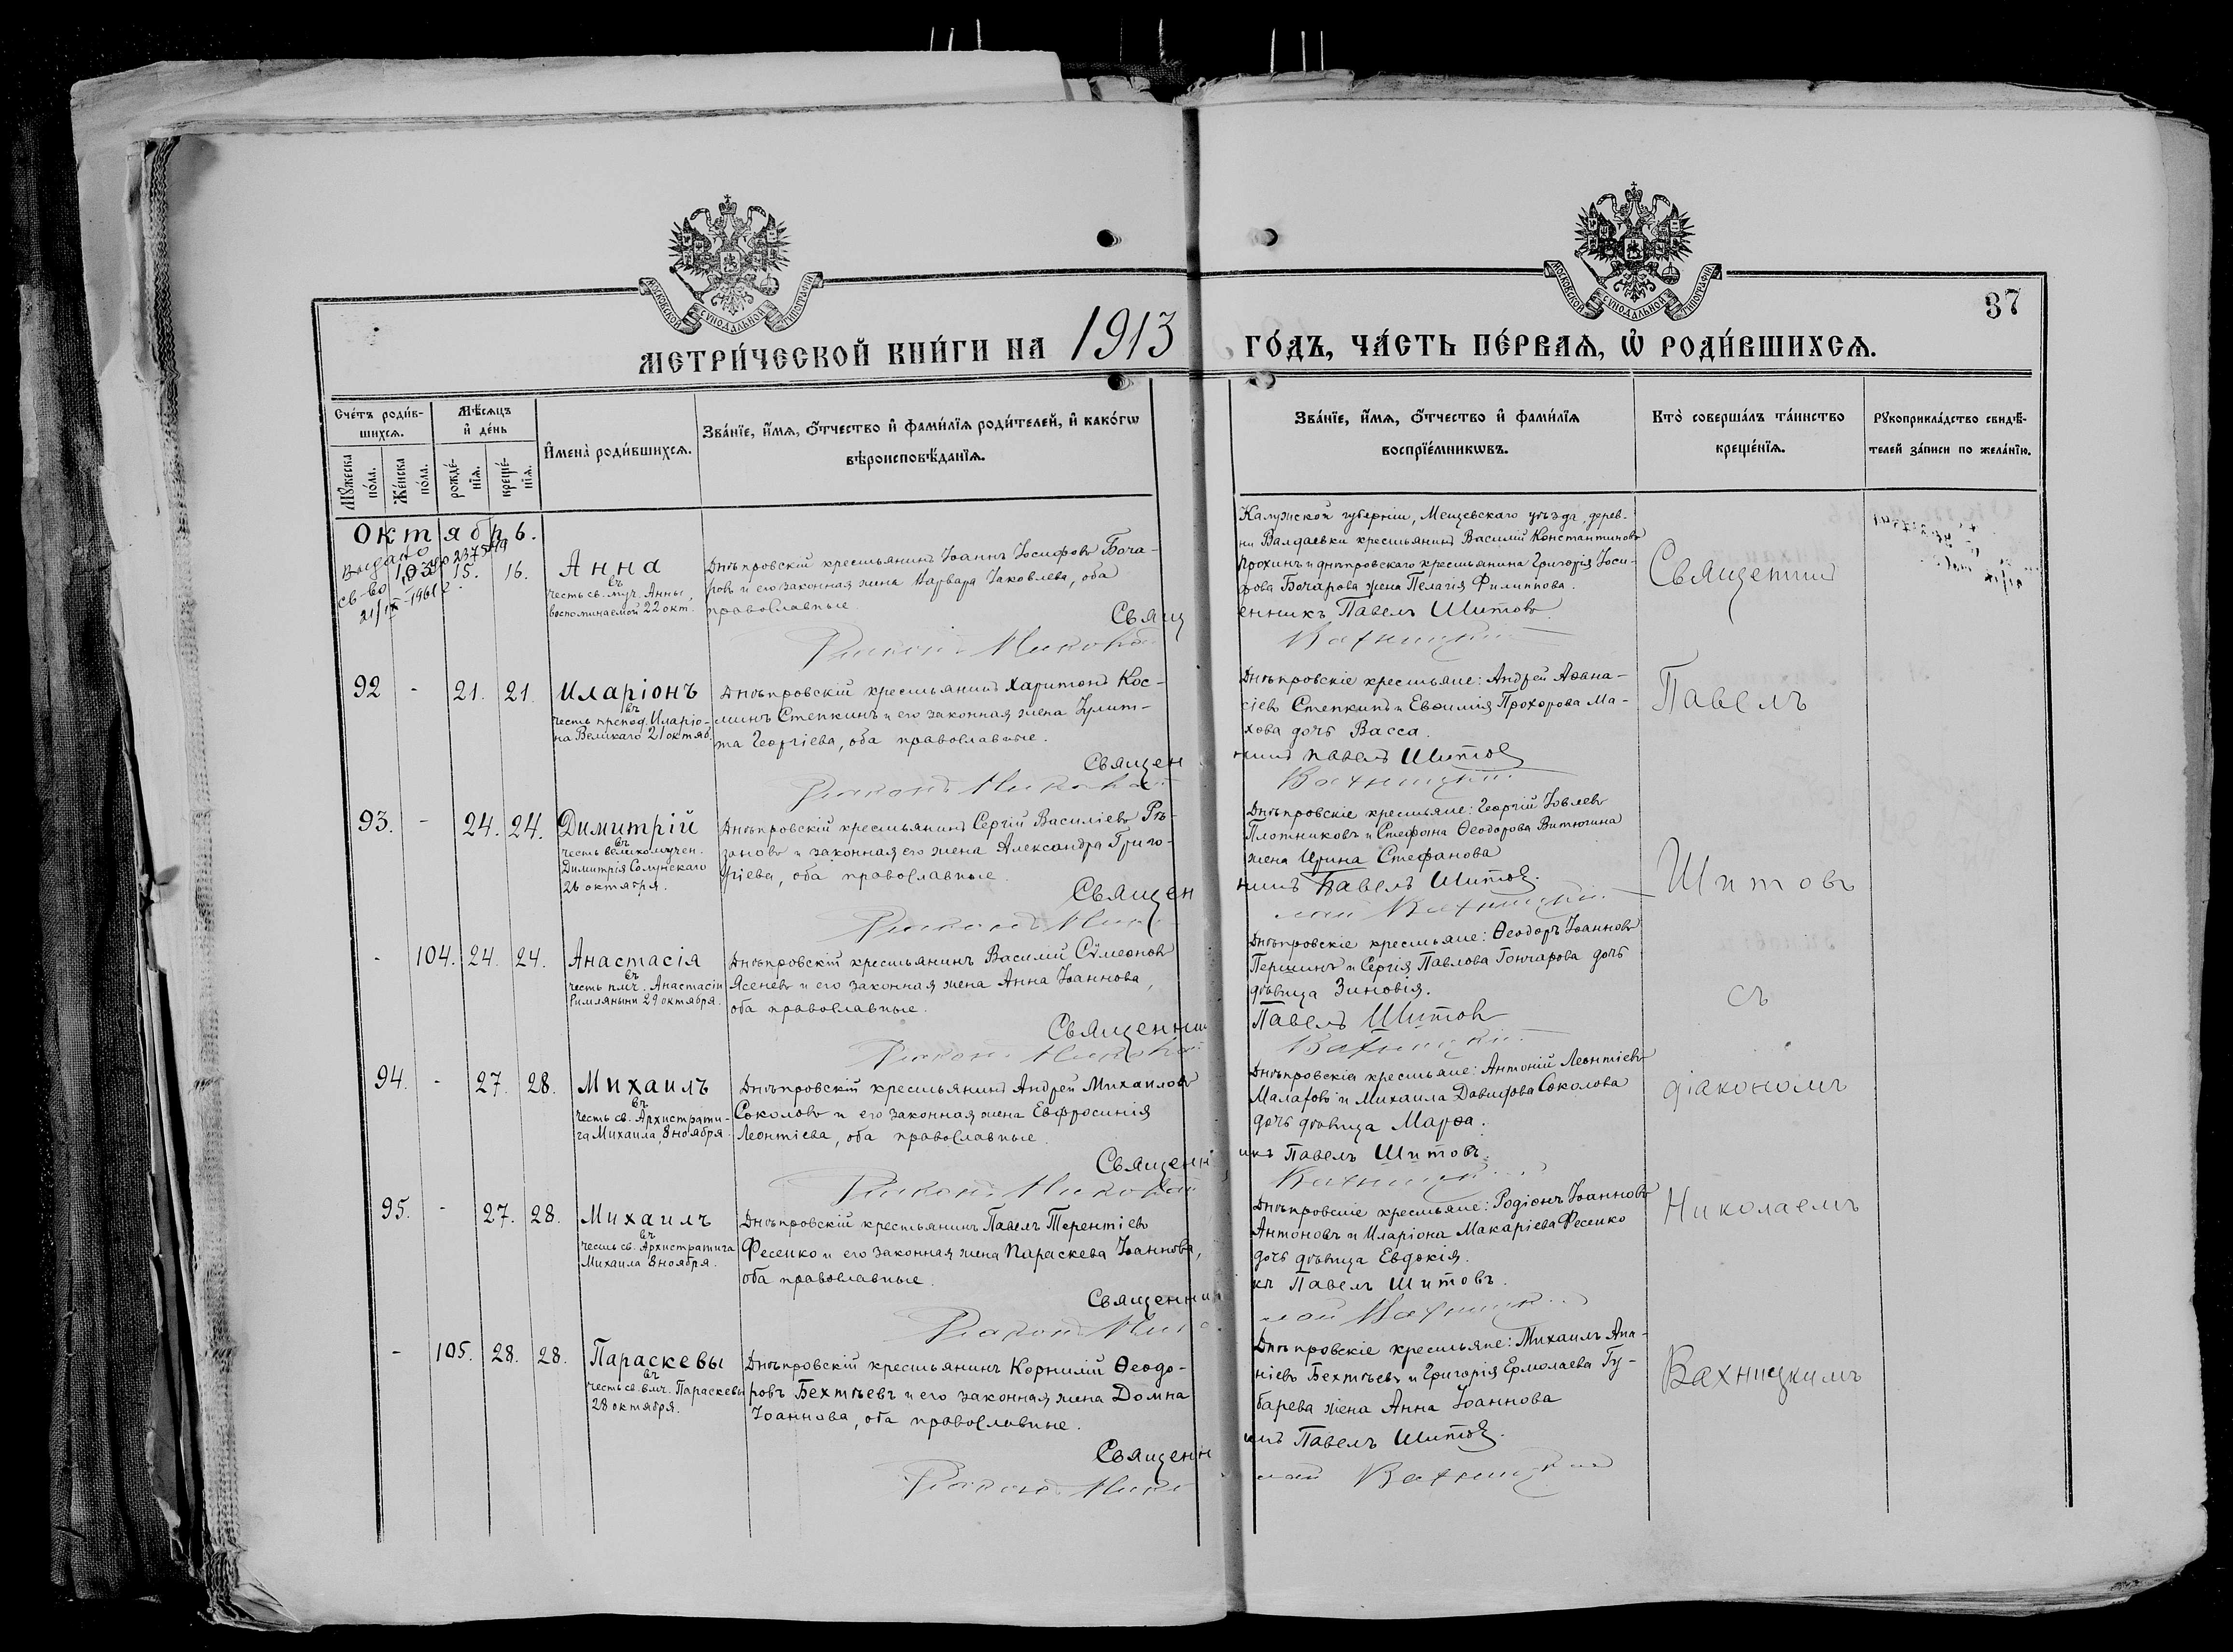 МОСКОВСКОЙ СѴНОДАЛЬНОЙ ТИПОГРАФІИ
МОСКОВСКОЙ СѴНОДАЛЬНОЙ ТИПОГРАФІИ
37
МЕТРИ́ЧЕСКОЙ КНИ́ГИ НА 1913 ГО́ДЪ, ЧА́СТЬ ПЕ́РВАѦ, Ѽ РОДИ́ВШИХСѦ.
Сче́тъ роди́в-
шихсѧ.
Мꙋ́жеска
по́ла.
Же́нска
по́ла.
Мѣ́сѧцъ
и҆ де́нь
рожде́-
нїѧ.
креще́-
нїѧ.
И҆мена̀ роди́вшихсѧ.
Зва́нїе, и҆́мѧ, ѻ҆́тчество и҆ фами́лїѧ роди́телей, и҆ како́гѡ
вѣроисповѣ́данїѧ.
Зва́нїе, и҆́мѧ, ѻ҆́тчество и҆ фами́лїѧ
воспрїе́мникѡвъ.
Кто̀ соверша́лъ та́инство
креще́нїѧ.
Рꙋкоприкла́дство свидѣ́-
телей за́писи по жела́нїю.
Октябрь.
Выдано
св-во
21/IX-1961 г.
103. 15. 16.
Анна
въ
честь св. муч. Анны,
воспоминаемой 22 окт.
Днѣпровскій крестьянинъ Іоаннъ Іосифовъ Боча-
ровъ и его законная жена Варвара Іаковлева, оба
православные.
Калужской губерніи, Мещевскаго уѣзда, дерев-
ни Валдаевки крестьянинъ Василій Константиновъ
Прохинъ и днѣпровскаго крестьянина Григорія Іоси-
фова Бочарова жена Пелагія Филиппова.
Священникъ Павелъ Шитовъ.
Діаконъ Николай Вахницкій
92 - 21. 21.
Иларіонъ
въ
честь препод. Иларіо-
на Великаго 21 октяб.
Днѣпровскій крестьянинъ Харитонъ Кос-
минъ Степкинъ и его законная жена Іулит-
та Георгіева, оба православные.
Днѣпровскіе крестьяне: Андрей Аѳана-
сіевъ Степкинъ и Евѳимія Прохорова Ма-
хова дочь Васса.
Священникъ Павелъ Шитовъ
Діаконъ Николай Вахницкій
93. - 24. 24.
Димитрій
въ
честь великомучен.
Димитрія Солунскаго
26 октября.
Днѣпровскій крестьянинъ Сергій Василіевъ Рѣ-
зановъ и законная его жена Александра Григо-
ріева, оба православные.
Днѣпровскіе крестьяне: Георгій Іовлевъ
Плотниковъ и Стефана Ѳеодорова Витюгина
жена Ирина Стефанова
Священникъ Павелъ Шитовъ.
Діаконъ Николай Вахницкій
- 104. 24. 24.
Анастасія
въ
честь пмч. Анастасіи
Римляныни 29 октября.
Днѣпровскій крестьянинъ Василій Сѵмеоновъ
Ясеневъ и его законная жена Анна Іоаннова,
оба православные.
Днѣпровскіе крестьяне: Ѳеодоръ Іоанновъ
Першинъ и Сергія Павлова Гончарова дочь
дѣвица Зиновія.
Священникъ Павелъ Шитовъ
Діаконъ Николай Вахницкій
94. - 27. 28.
Михаилъ
въ
честь св. Архистрати-
га Михаила, 8 ноября.
Днѣпровскій крестьянинъ Андрей Михаиловъ
Соколовъ и его законная жена Евфросинія
Леонтіева, оба православные.
Днѣпровскіе крестьяне: Антоній Леонтіевъ
Малаховъ и Михаила Давидова Соколова
дочь дѣвица Марѳа.
Священникъ Павелъ Шитовъ.
Діаконъ Николай Вахницкій
95. - 27. 28.
Михаилъ
въ
честь св. Архистратига
Михаила 8 ноября.
Днѣпровскій крестьянинъ Павелъ Терентіевъ
Фесенко и его законная жена Параскева Іоаннова,
оба православные.
Днѣпровскіе крестьяне: Родіонъ Іоанновъ
Антоновъ и Иларіона Макаріева Фесенко
дочь дѣвица Евдокія.
Священникъ Павелъ Шитовъ.
Діаконъ Николай Вахницкій
- 105. 28. 28.
Параскевы
въ
честь св. вмч. Параскевы
28 октября.
Днѣпровскій крестьянинъ Корнилій Ѳеодо-
ровъ Бехтѣевъ и его законная жена Домна
Іоаннова, оба православные.
Днѣпровскіе крестьяне: Михаилъ Ана-
ніевъ Бехтѣевъ и Григорія Ермолаева Гу-
барева жена Анна Іоаннова
Священникъ Павелъ Шитовъ.
Діаконъ Николай Вахницкій
Священник
Павелъ
Шитовъ
съ
діакономъ
Николаемъ
Вахницкимъ